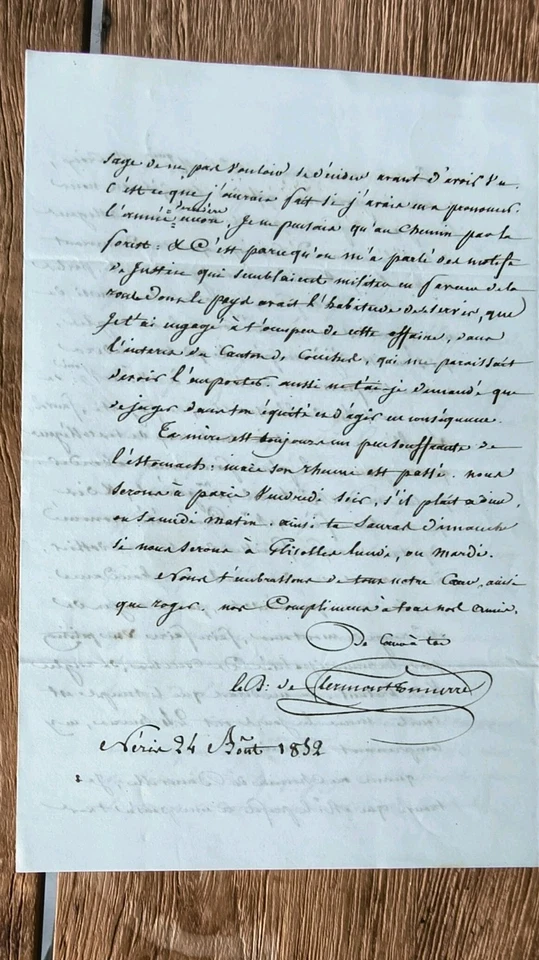 sage de ne pas vouloir se décider avant d'avoir vu.
C'est ce que j'aurais fait si j'avais eu a prononcer.
l'année dernière je ne pensais qu'au Chemin par la
: & C'est parcequ'on m'a parlé des motifs
de Justice qui semblaient militer en faveur de la
route dont le pays avait l'habitude de se servir, que
Je t'ai engagé a t'occuper de cette affaire, dans
l'interet du Canton de, qui me paraissait
devoir l'emporter. aussi ne t'ai je demandé que
de juger dans ton équité et d'agir en conséquence.
Ta mère est toujours un peu souffrante de
l'estomach: mais son rhume est passé. nous
serons à paris Vendredi soir, s'il plait a dieu,
ou Samedi matin. ainsi tu sauras dimanche
si nous serons à Glisolles lundi, ou mardi.
Nous t'embrassons de tout notre Cœur, ainsi
que roger. nos Complimens à tous nos amis.
De Cœur à toi
le D: de Clermont Tonnerre
Néris 24 Août 1852